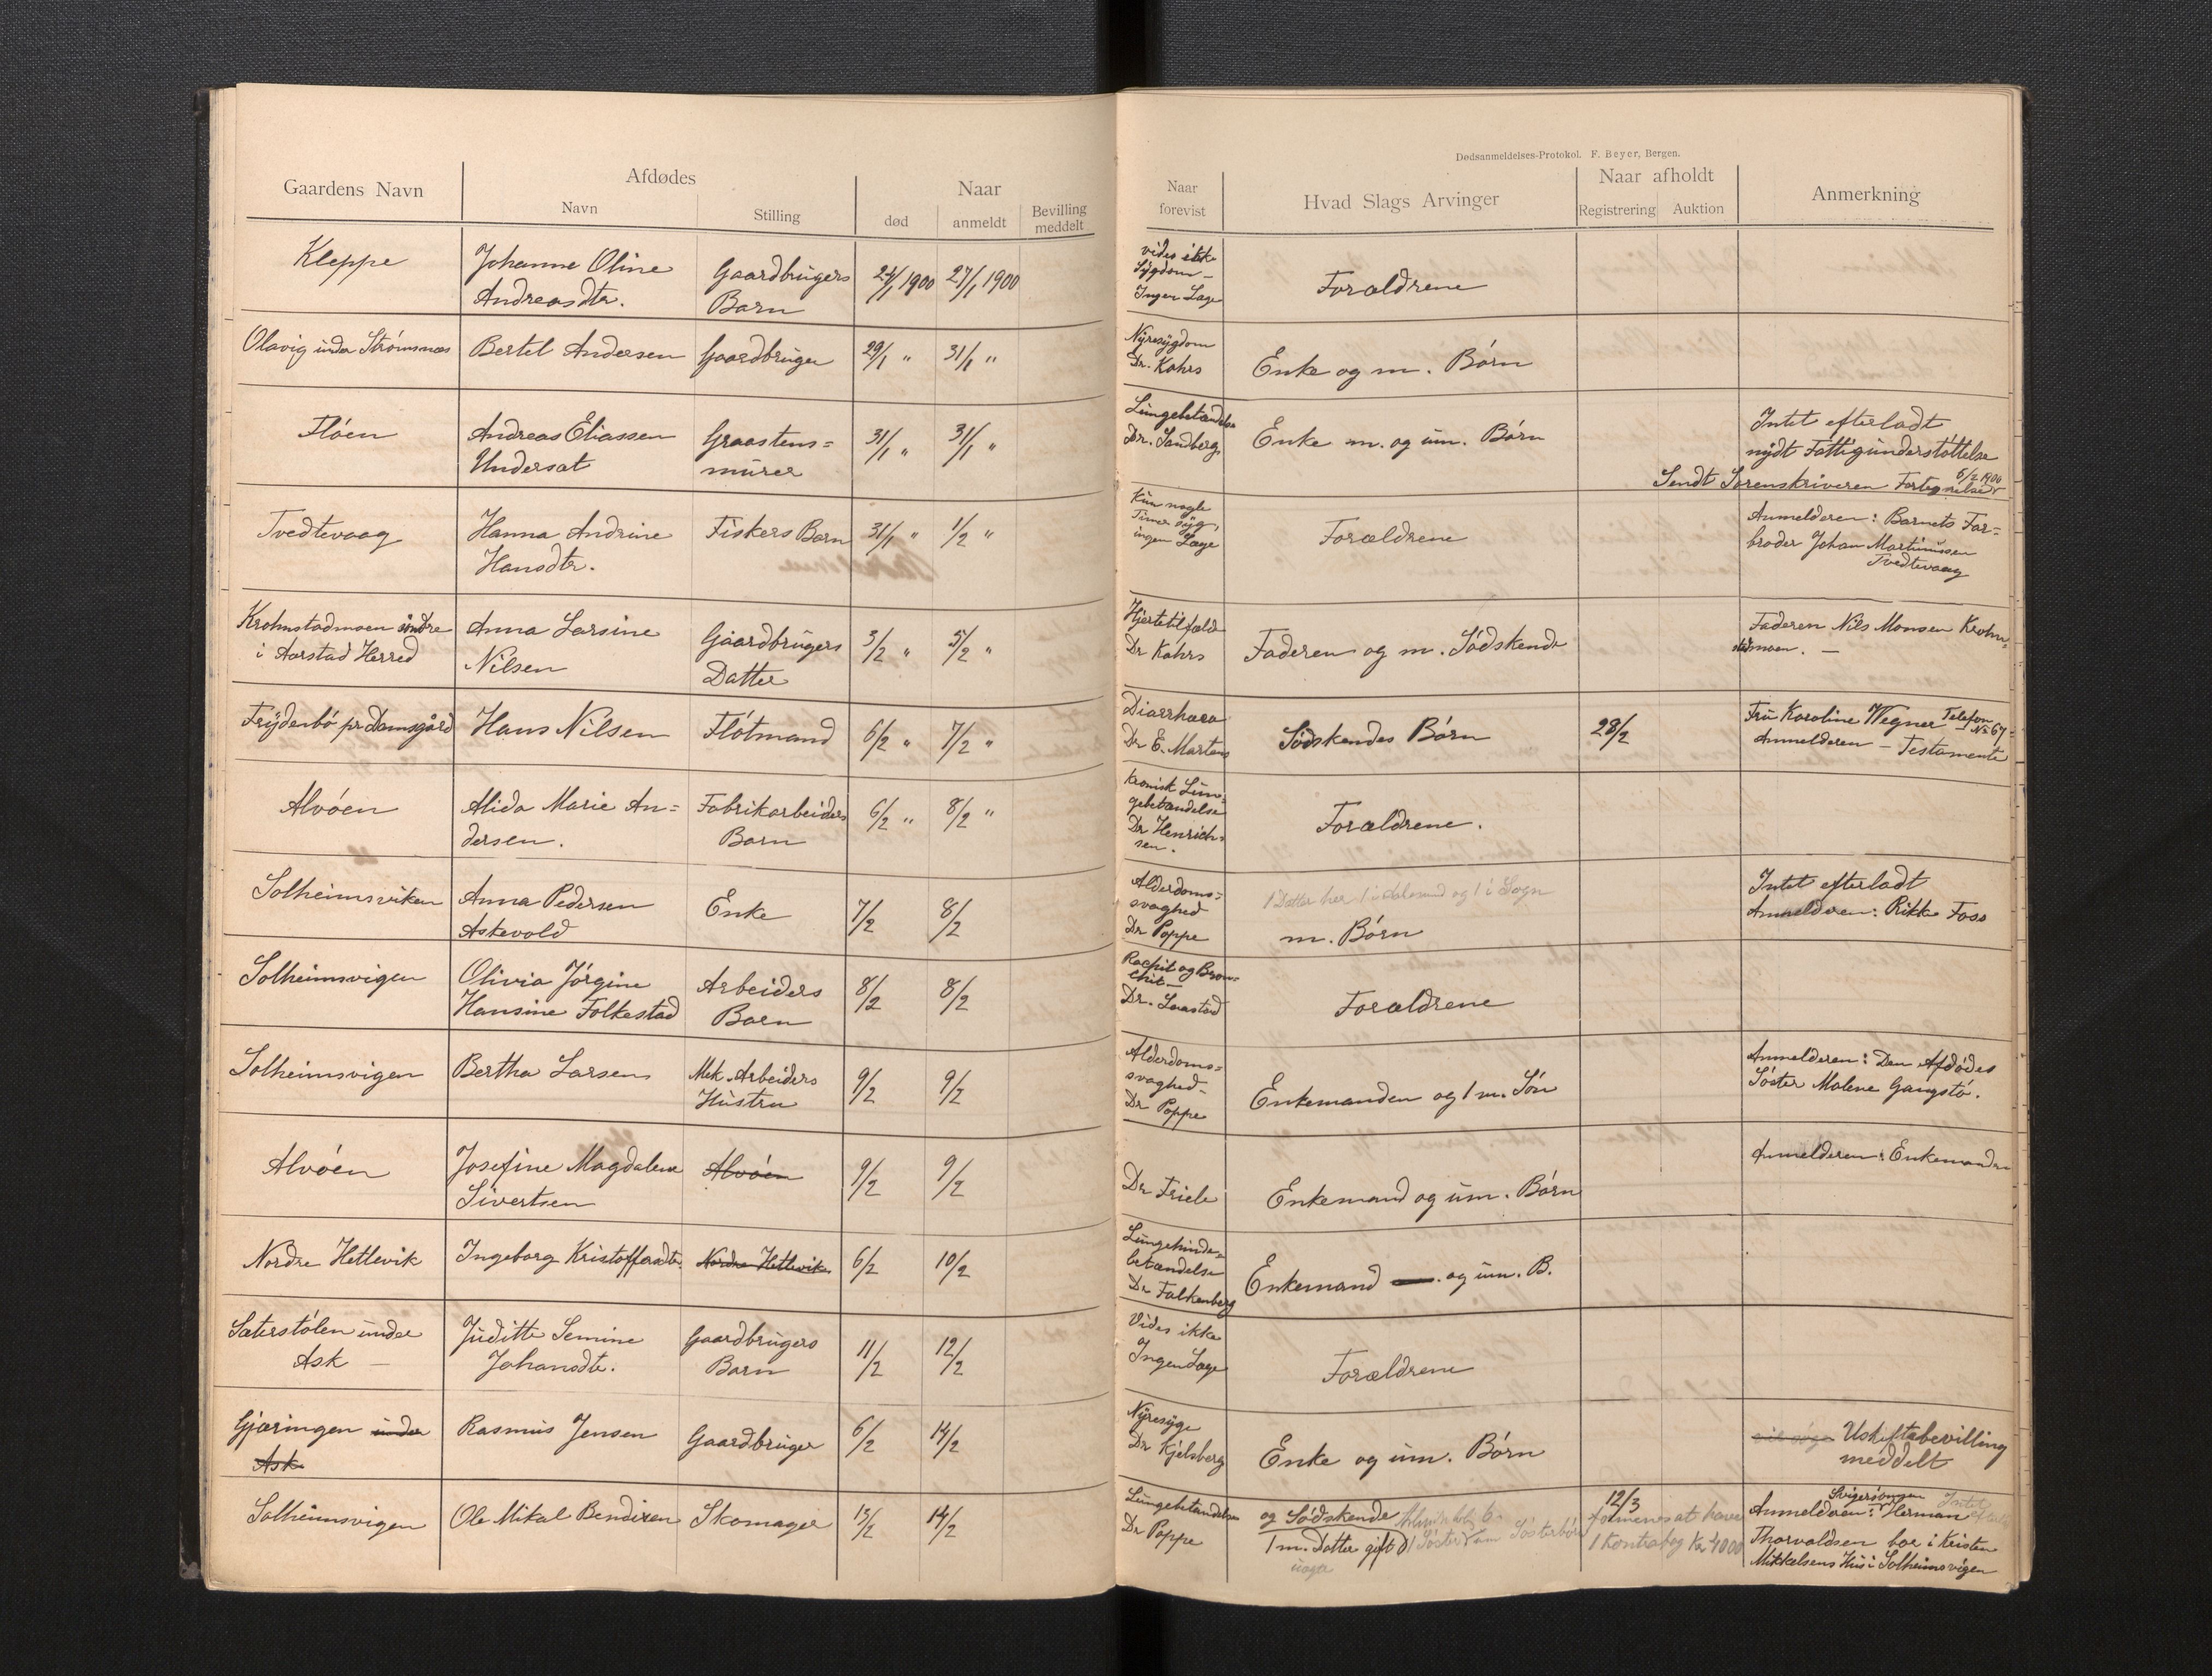 Dødsanmeldelses-Protokol. F. Beyer, Bergen.
Gaardens Navn
Afdødes
Navn
Stilling
Naar
død
anmeldt
Bevilling
meddelt
Naar
forevist
Hvad Slags Arvinger
Naar afholdt
Registrering
Auktion
Anmerkning
Kleppe
Johanne Oline
Andreasdtr.
Gaardbrugers
Barn
24/1 1900
27/1 1900
vides ikke
Sygdom –
Ingen Læge
Forældrene
Olavig under Strømsnæs
Bertel Andersen
Gaardbruger
29/1 "
31/1 "
Nyresygdom
Dr. Kahrs
Enke og m. Børn
Fløen
Andreas Eliassen
Undersat
Graastens=
murer
31/1 "
31/1 "
Lungebetændelse
Dr. Sandberg
Enke m. og um. Børn
Intet efterladt
nydt Fattigunderstøttelse
Sendt Sorenskriveren Fortegnelse 6/2 1900
Tvedtevaag
Hanna Andrine
Hansdtr.
Fiskers Barn
31/1 "
1/2 "
Kun nogle
Timer syg,
ingen Læge
Forældrene
Anmelderen: Barnets Far=
broder Johan Martinussen
Tvedtevaag
Krohnstadmoen søndre
i Aarstad Herred
Anna Larsine
Nilsen
Gaardbrugers
Datter
3/2 "
5/2 "
Hjertetilfælde
Dr Kahrs
Faderen og m. Sødskende
Faderen Nils Monsen Krohn=
stadmoen. –
Frydenbø pr Damsgård
Hans Nilsen
Fløtmand
6/2 "
7/2 "
Diarrhæa
Dr E. Martens
Sødskendes Børn
28/2
Fru Karoline Wegner Telefon
No 67=
Anmelderen – Testamente
Alvøen
Alida Marie An=
dersen.
Fabrikarbeiders
Barn
6/2 "
8/2 "
kronisk Lun=
gebetændelse
Dr Henrich=
sen.
Forældrene.
Solheimsviken
Anna Pedersen
Askevold
Enke
7/2
8/2
Alderdoms=
svaghed
Dr Poppe
1 Datter her 1 i Aalesund og 1 i Sogn
m. Børn
Intet efterladt
Anmelderen: Rikke Foss
Solheimsvigen
Olivia Jørgine
Hansine Folkestad
Arbeiders
Barn
8/2
8/2
Rachit og Bron=
chit –
Dr.
Forældrene
Solheimsvigen
Bertha Larsen
Mek. Arbeiders
Hustru
9/2
9/2
Alderdoms=
svaghed –
Dr Poppe
Enkemanden og 1 m. Søn
Anmelderen: Den Afdødes
Søster Malene Gangstø.
Alvøen
Josefine Magdalene
Sivertsen
Alvøen
9/2
9/2
Dr Friele
Enkemand og um. Børn
Anmelderen: Enkemanden
Nordre Hetlevik
Ingeborg Kristoffersdtr.
Nordre Hetlevik
6/2
10/2
Lungehinde=
betændelse
Dr Falkenberg
Enkemand og um. B.
Sæterstølen under
Ask –
Juditte Semine
Johansdtr.
Gaardbrugers
Barn
11/2
12/2
Vides ikke
Ingen Læge
Forældrene
Gjæringen under
Ask
Rasmus Jensen
Gaardbruger
6/2
14/2
Nyresyge
Dr Kjelsberg
Enke og um. Børn
vil søge Uskiftebevilling
meddelt
Solheimsvigen
Ole Mikal Bendixen
Skomager
13/2
14/2
Lungebetændelse
Dr Poppe
og Sødskende
1 m. Datter gift
uægte
Søsterbørn
12/3
formenes at have
1 Kontrabog Kr 4000
Svigersønnen Intet
Anmelderen: Herman
Thorvaldsen bor i Kristen
Mikkelsens Hus i Solheimsvigen